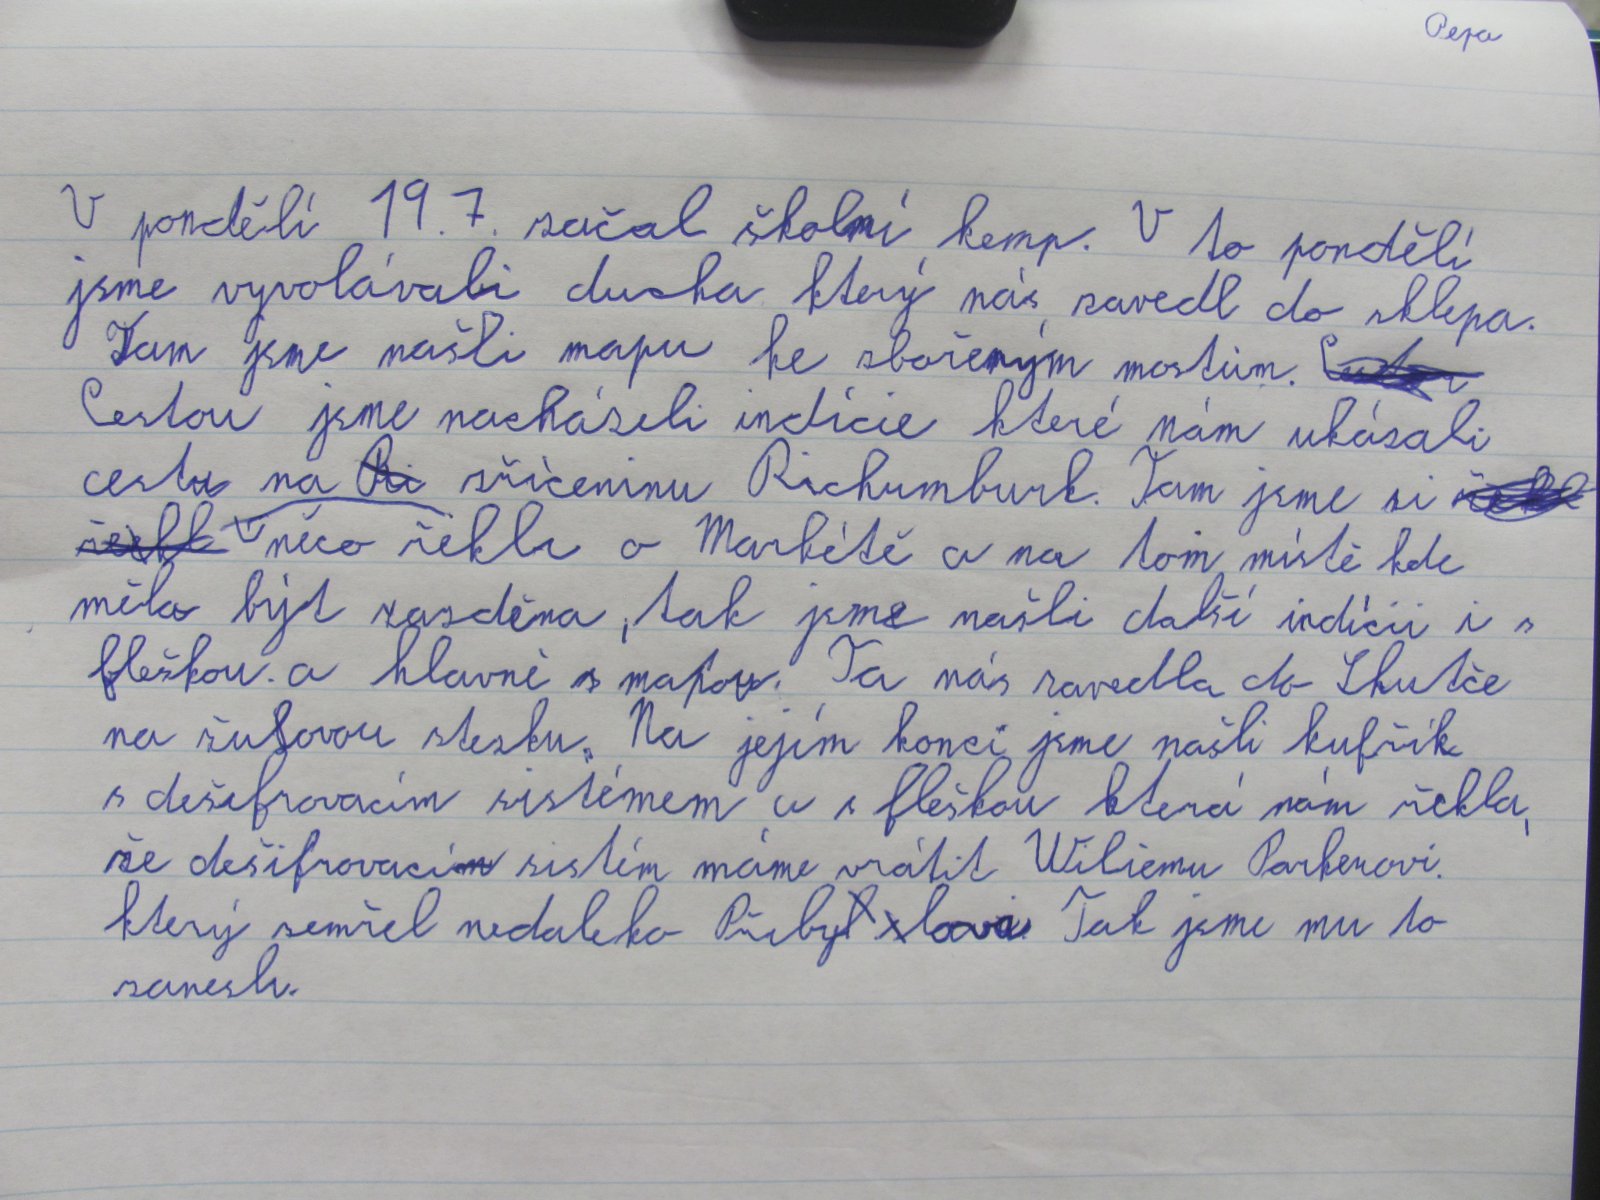 Pepa
V pondělí 19.7. začal školní kemp. V to pondělí
jsme vyvolávali ducha který nás zavedl do sklepa.
Tam jsme našli mapu ke zbořeným mostům.
Cestou jsme nacházeli indície které nám ukázali
cestu na zříceninu Richumburk. Tam jsme si
něco řekli o Markétě a na tom místě kde
měla být zazděna, tak jsme našli další indícii i s
fleškou. a hlavně s mapou. Ta nás zavedla do Skutče
na žulovou stezku. Na jejím konci jsme našli kufřík
s dešifrovacím sistémem a s fleškou která nám řekla,
že dešifrovací sistém máme vrátit Wiliemu Parkerovi.
který zemřel nedaleko Tak jsme mu to
zanesli.